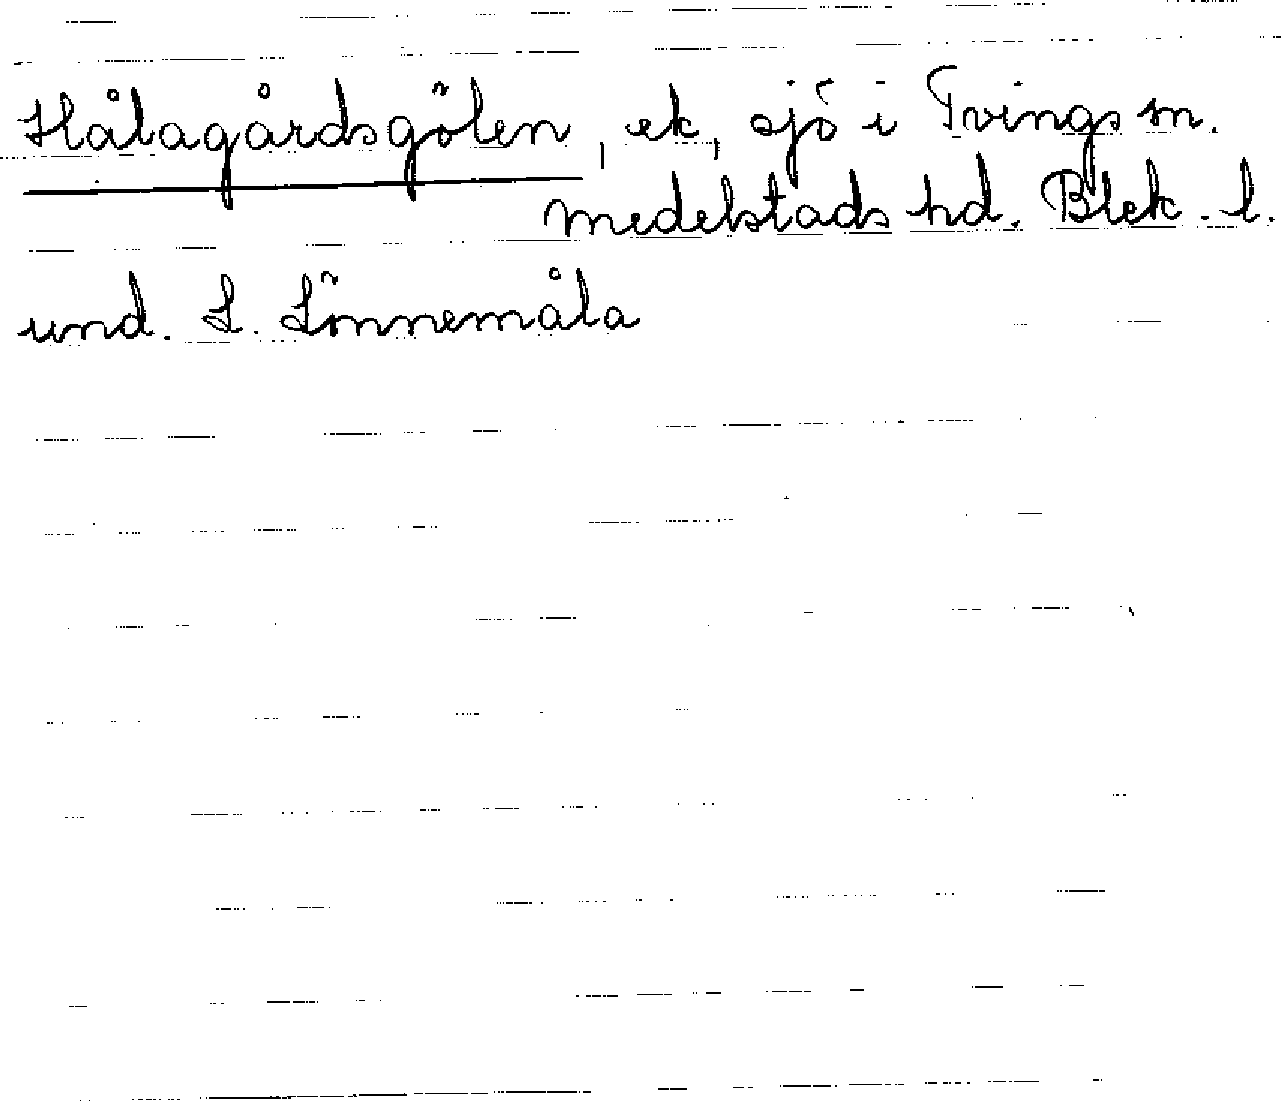 Hålagårdsgölen, ek, sjö i Tvings sn.
Medelstads hd. Blek. l.
und. L. Lönnemåla